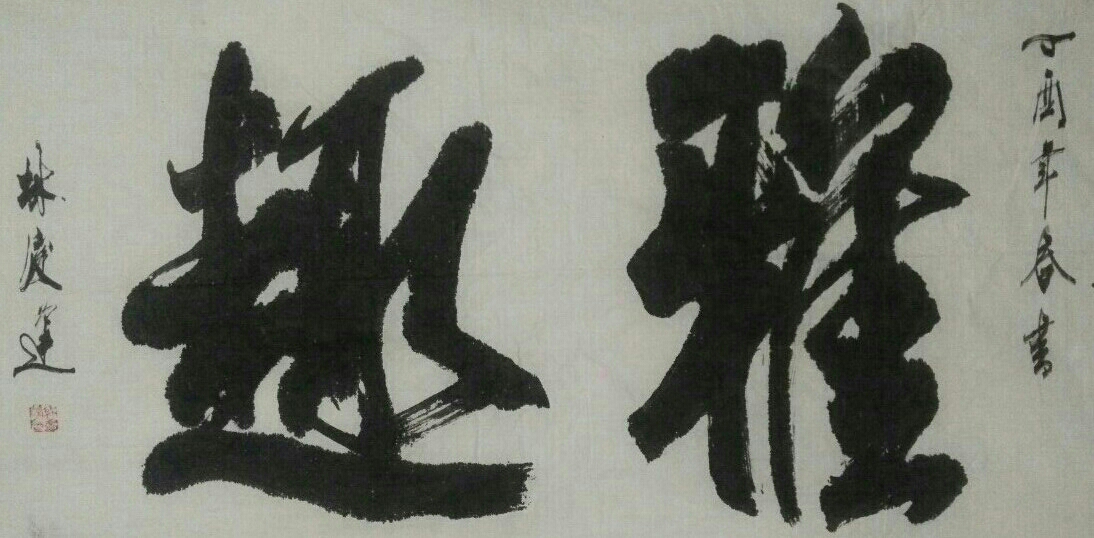 丁酉年春書
雅趣
林慶